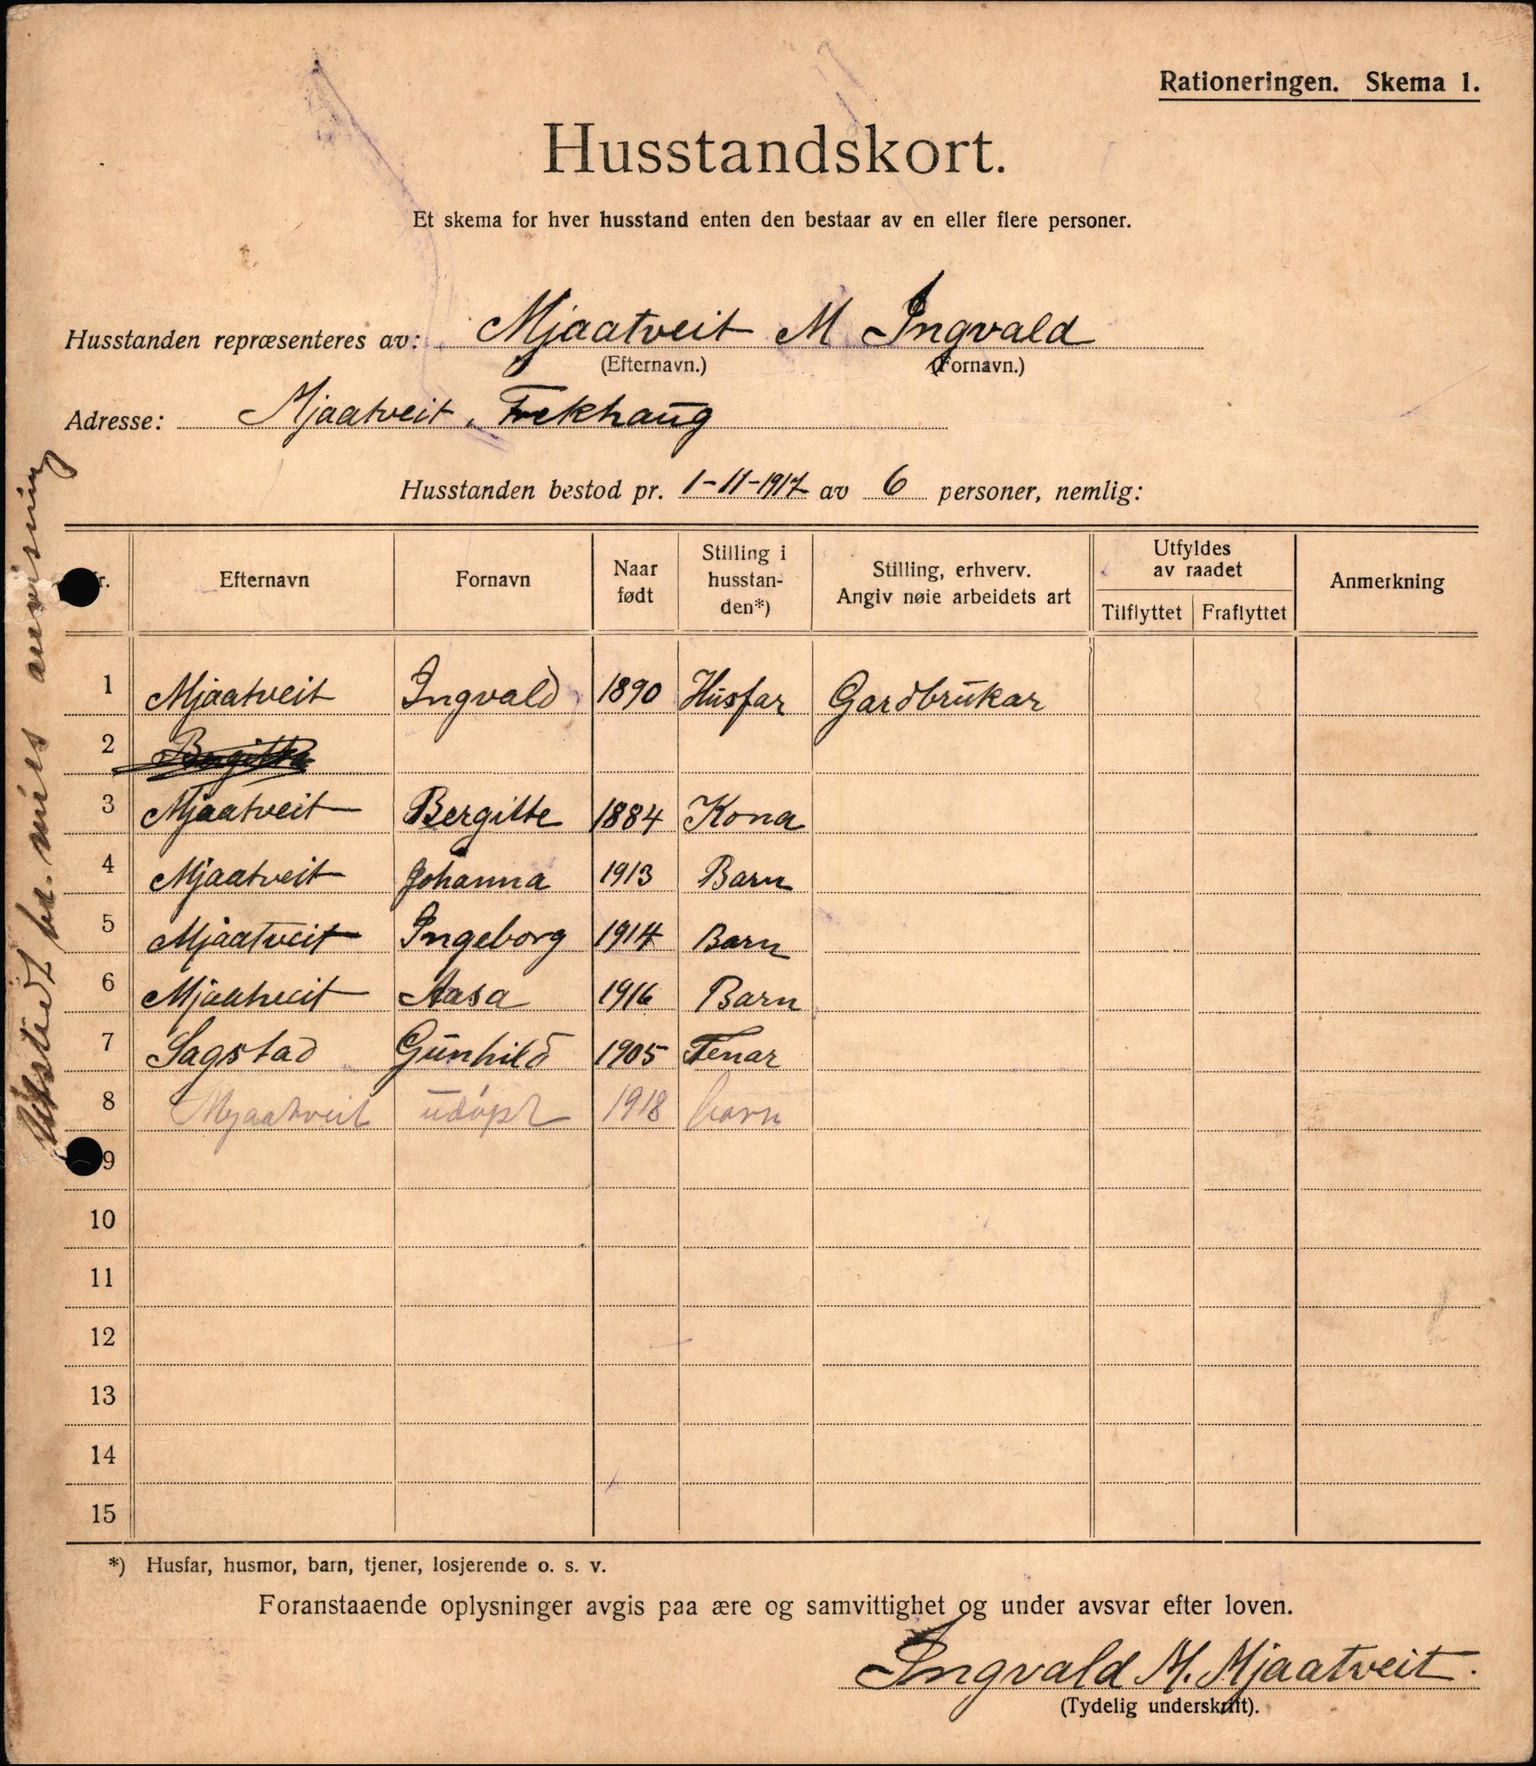 Rationeringen. Skema 1.
Husstandskort.
Et skema for hver husstand enten den bestaar av en eller flere personer.
Husstanden repræsenteres av: Mjaatveit M Ingvald
(Efternavn.) (Fornavn.)
Adresse: Mjaatveit, Frekhaug
Husstanden bestod pr. 1-11-1917 av 6 personer, nemlig:
Nr. Efternavn Fornavn Naar født Stilling i husstanden*) Stilling, erhverv. Angiv nøie arbeidets art Utfyldes av raadet Tilflyttet Fraflyttet Anmerkning
1 Mjaatveit Ingvald 1890 Husfar Gardbrukar
2 Bergitte
3 Mjaatveit Bergitte 1884 Kona
4 Mjaatveit Johanna 1913 Barn
5 Mjaatveit Ingeborg 1914 Barn
6 Mjaatveit Aasa 1916 Barn
7 Sagstad Gunhild 1905 Tenar
8 Mjaatveit udøpt 1918 barn
9
10
11
12
13
14
15
*) Husfar, husmor, barn, tjener, losjerende o. s. v.
Foranstaaende oplysninger avgis paa ære og samvittighet og under avsvar efter loven.
Ingvald M. Mjaatveit.
(Tydelig underskrift).
anvisning